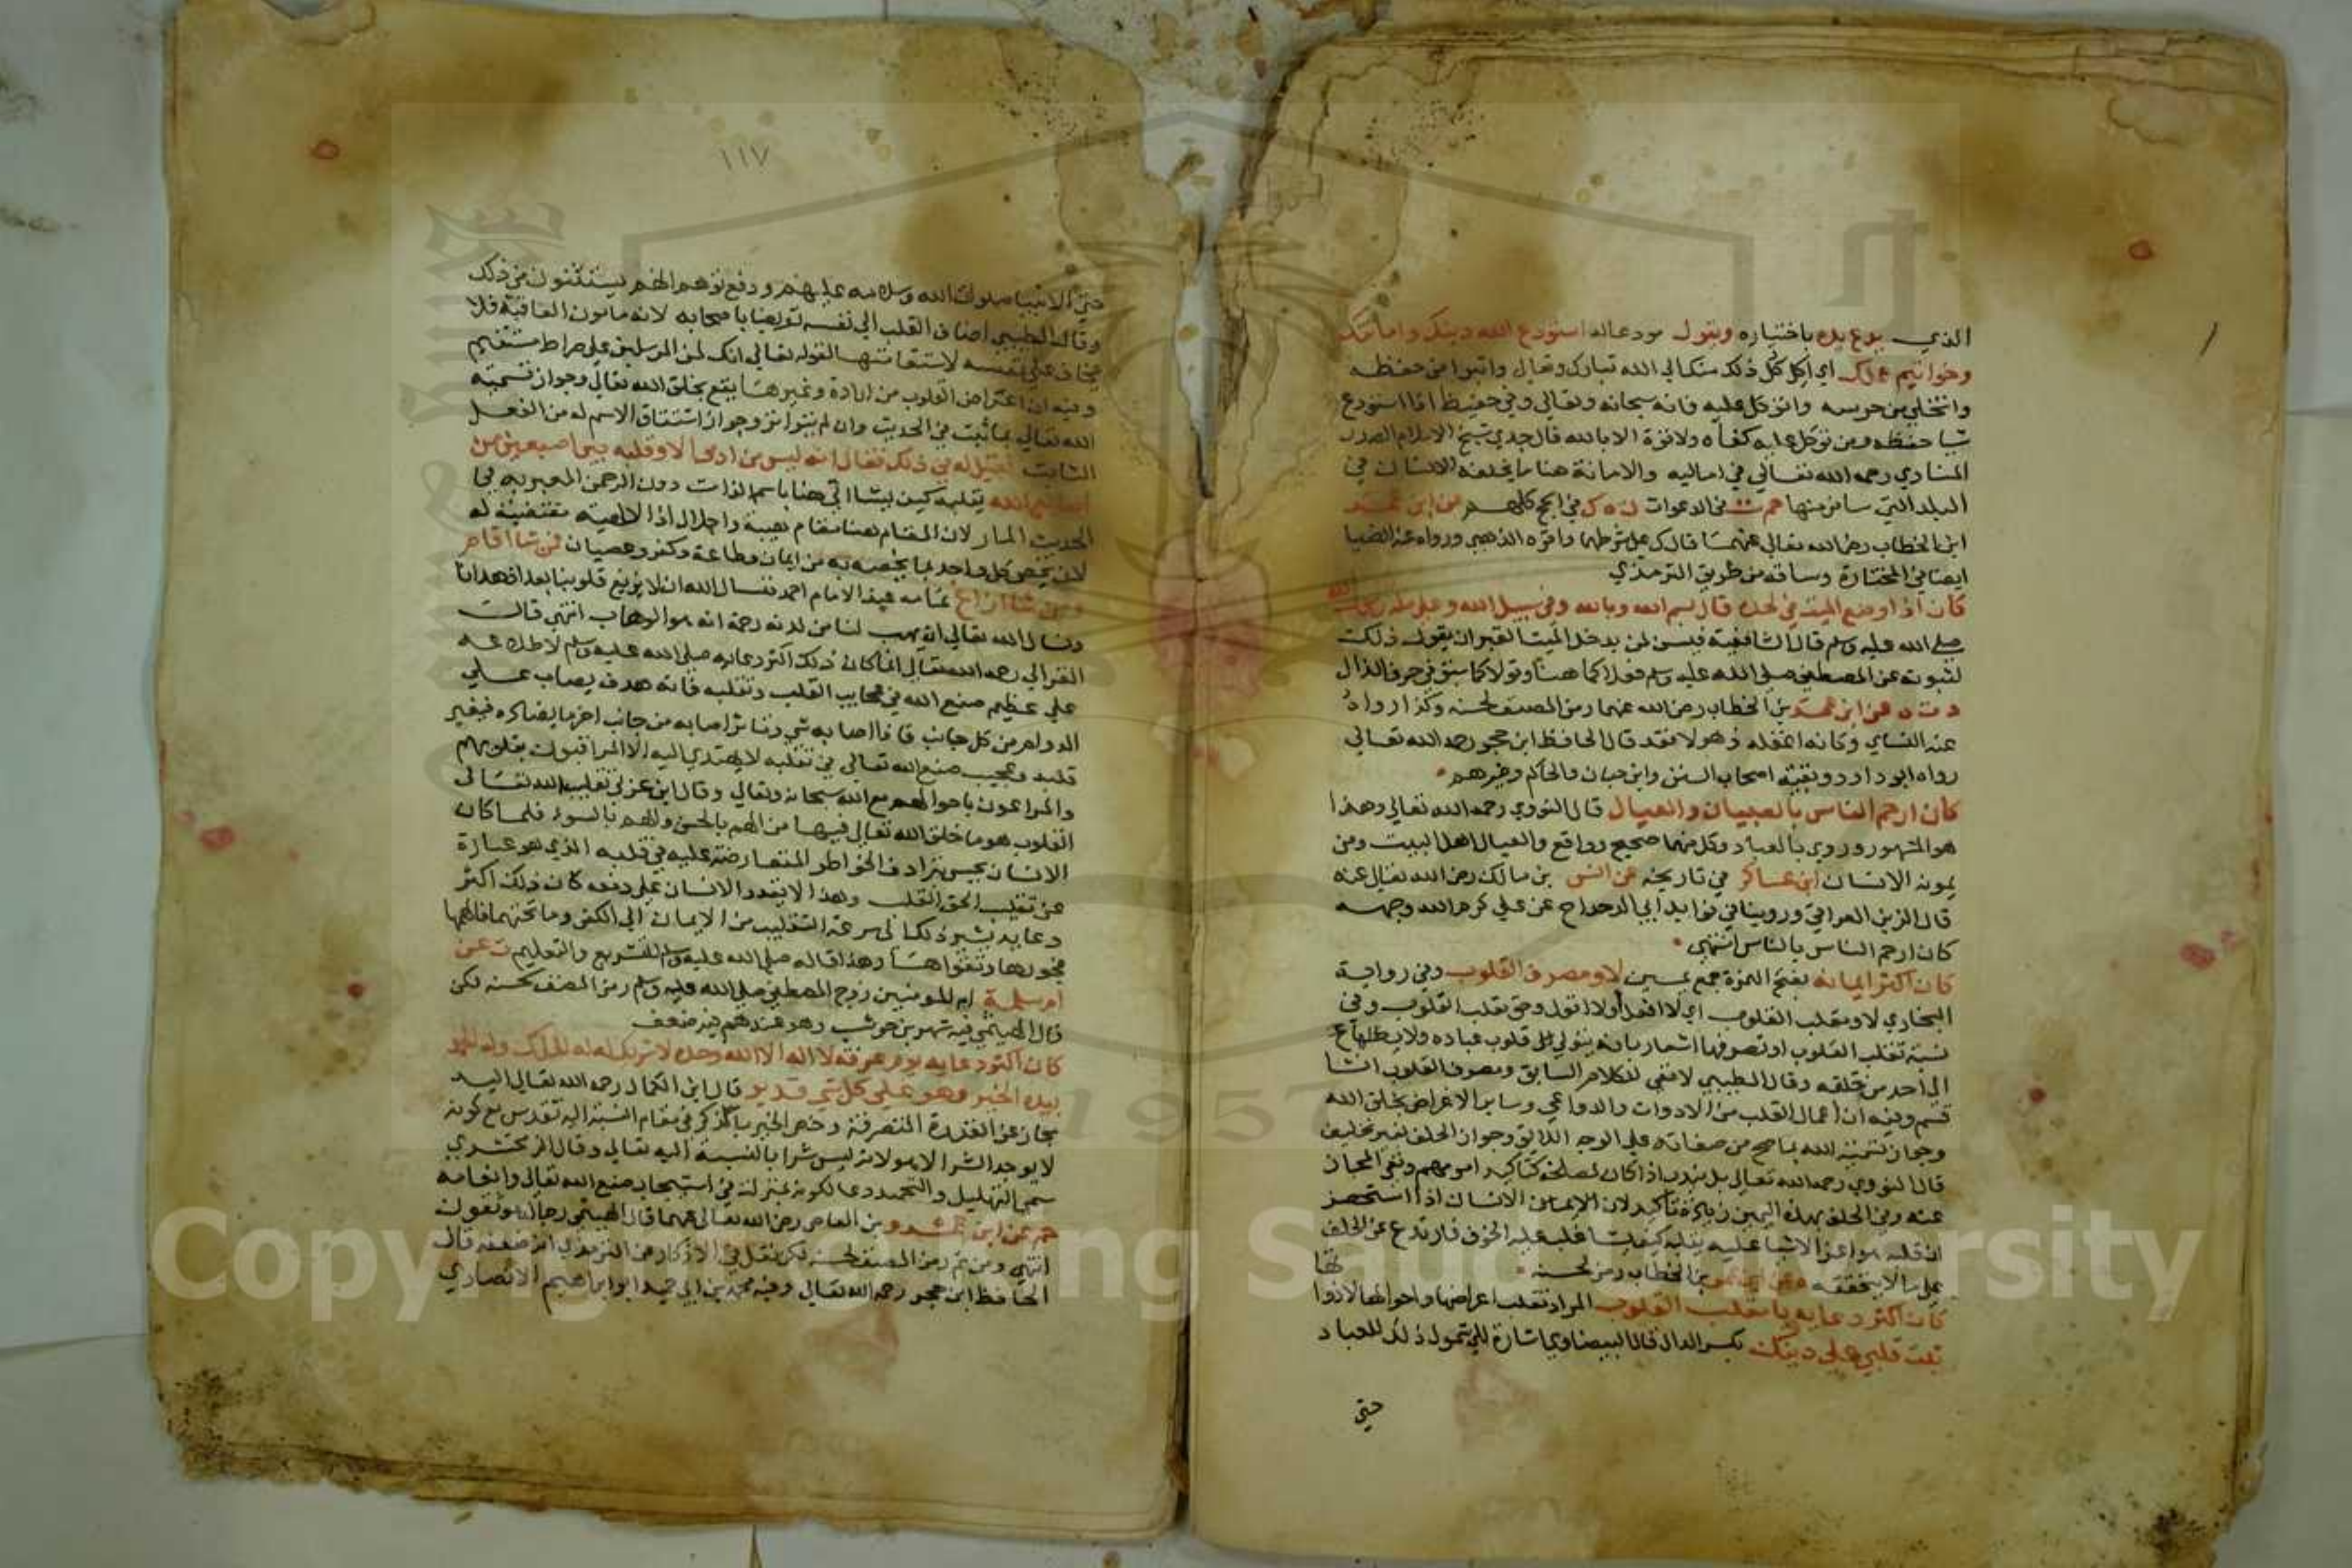 الذي يدع يده باختياره ويقول مودعا له استودع الله دينك وامانتك
وخواتيم عملك اي اكل كل ذلك منك الي الله تبارك وتعالي واتبرا من حفظه
واتخلي من حرسه واتوكل عليه فانه سبحانه وتعالي وفي حفيظ اذا استودع
شيا حفظه ومن توكل عليه كفاه ولا قوة الا بالله قال جدي شيخ الاسلام الصدر
المناوي رحمه الله تعالي في اماليه والامانة هنا ما يخلفه الانسان في
البلد التي سافر منها حم ت في الدعوات ن ه ك في الحج كلهم عن ابن عمر
ابن الخطاب رضي الله تعالي عنهما قال ك علي شرطهما واقره الذهبي ورواه عنه الضيا
ايضا في المختارة وساقه من طريق الترمذي
كان اذا وضع الميت في لحده قال بسم الله وبالله وفي سبيل الله وعلي ملة رسول الله
صلي الله عليه وسلم قال الشافعية فيسن لمن يدخل الميت القبر ان يقول ذلك
لثبوته عن المصطفي صلي الله عليه وسلم فعلا كما هنا وقولا كما سبق في حرف الذال
د ت ه هق عن ابن عمر بن الخطاب رضي الله عنهما رمز المصنف لحسنه وكذا رواه
عنه النساي وكانه اغفله ذهولا فقد قال الحافظ ابن حجر رحمه الله تعالي
رواه ابو داود وبقية اصحاب السنن وابن حبان والحاكم وغيرهم
كان ارحم الناس بالصبيان والعيال قال النووي رحمه الله تعالي وهذا
هو المشهور وروي بالعباد وكل منهما صحيح وواقع والعيال اهل البيت ومن
يمونه الانسان ابن عساكر في تاريخه عن انس بن مالك رضي الله تعالي عنه
قال الزين العراقي وروينا في فوايد ابي الدحداح عن علي كرم الله وجهه
كان ارحم الناس بالناس انتهي
كان اكثر ايمانه بفتح الهمزة جمع يمين لا ومصرف القلوب وفي رواية
البخاري لا ومقلب القلوب اي لا افعل اولا اقول وحق مقلب القلوب وفي
نسبة تقلب القلوب او تصرفها اشعار بانه يتولي قلوب عباده ولا يكلها
الي احد من خلقه وقال الطيبي لا نفي للكلام السابق ومصرف القلوب انشا
قسم وفيه ان اعمال القلب من الادوات والدواعي وساير الاعراض بخلق الله
وجواز تسمية الله بما صح من صفاته علي الوجه اللايق وجواز الحلف بغير تحليف
قال النووي رحمه الله تعالي بل يندب اذا كان لمصلحة كتاكيد امر مهم ونفي المجاز
عنه وفي الحلف بهذه اليمين زيادة تاكيد لان الانسان اذا استحضر
ان قلبه وهو اعز الاشيا عليه بيد الله يقلبه كيف يشا غلب عليه الخوف فارتدع عن الحلف
علي ما لا يتحققه ه عن ابن عمر بن الخطاب رمز لحسنه
كان اكثر دعايه يا مقلب القلوب المراد تقلب اعراضها واحوالها لا ذواتها
ثبت قلبي علي دينك بكسر الدال قال البيضاوي اشارة الي شمول ذلك للعباد
حتي
١١٧
حتي الانبيا صلوات الله وسلامه عليهم ودفع توهم انهم يستثنون من ذلك
وقال الطيبي اضاف القلب الي نفسه تعريضا باصحابه لانه مامون العاقبة فلا
يخاف علي نفسه لاستقامتها لقوله تعالي انك لمن المرسلين علي صراط مستقيم
وفيه ان اعراض القلوب من ارادة وغيرها يقع بخلق الله تعالي وجواز تسمية
الله تعالي بما ثبت في الحديث وان لم يتواتر وجواز اشتقاق الاسم له من الفعل
الثابت فقيل له في ذلك فقال انه ليس من ادمي الا وقلبه بين اصبعين من
اصابع الله يقلبه كيف يشا اتي هنا باسم الذات دون الرحمن المعبر به في
الحديث المار لان المقام هنا مقام هيبة واجلال اذ الالهية مقتضية له
لان يخص كل واحد بما يخصه به من ايمان وطاعة وكفر وعصيان فمن شا اقام
ومن شا ازاغ تمامه عند الامام احمد فنسال الله ان لا يزيغ قلوبنا بعد اذ هدانا
ونسال الله تعالي ان يهب لنا من لدنه رحمة انه هو الوهاب انتهي قال
الغزالي رحمه الله تعالي انما كان ذلك اكثر دعايه صلي الله عليه وسلم لاطلاعه
علي عظيم صنع الله في عجايب القلب وتقلبه فانه هدف يصاب علي
الدوام من كل جانب فاذا اصابه شي وتاثر اصابه من جانب اخر ما يضاده فيغير
قلبه وعجيب صنع الله تعالي في تقلبه لا يهتدي اليه الا المراقبون بقلوبهم
والمراعون باحوالهم مع الله سبحانه وتعالي وقال ابن عربي تقليب الله تعالي
القلوب هو ما خلق الله تعالي فيها من الهم بالحسن والهم بالسوء فلما كان
الانسان يحس بترادف الخواطر المتعارضة عليه في قلبه الذي هو عبارة
عن تقليب الحق القلب وهذا لا يقدر الانسان علي دفعه كان ذلك اكثر
دعايه يشير بذلك الي سرعة التقليب من الايمان الي الكفر وما تحتهما فالهمها
فجورها وتقواها وهذا قاله صلي الله عليه وسلم للتشريع والتعليم ت عن
ام سلمة ام المومنين زوج المصطفي صلي الله عليه وسلم رمز المصنف لحسنه لكن
قال الهيثمي فيه شهر بن حوشب وهو عندهم فيه ضعف
كان اكثر دعايه يوم عرفة لا اله الا الله وحده لا شريك له له الملك وله الحمد
بيده الخير وهو علي كل شي قدير قال ابن الكمال رحمه الله تعالي اليد
مجاز عن القدرة المتصرفة وخص الخير بالذكر في مقام النسبة اليه تقدس مع كونه
لا يوجد الشر الا هو لانه ليس شرا بالنسبة اليه تعالي وقال الزمخشري
سمي التهليل والتحميد دعا لكونه بمنزلة في استيجاب صنع الله تعالي وانعامه
حم عن ابن عمرو بن العاصي رضي الله تعالي عنهما قال الهيثمي رجاله موثقون
انتهي ومن ثم رمز المصنف لحسنه لكن نقل في الاذكار عن الترمذي انه ضعفه قال
الحافظ ابن حجر رحمه الله تعالي وفيه محمد بن ابي حميد ابو ابراهيم الانصاري
1957
Copyright © King Saud University